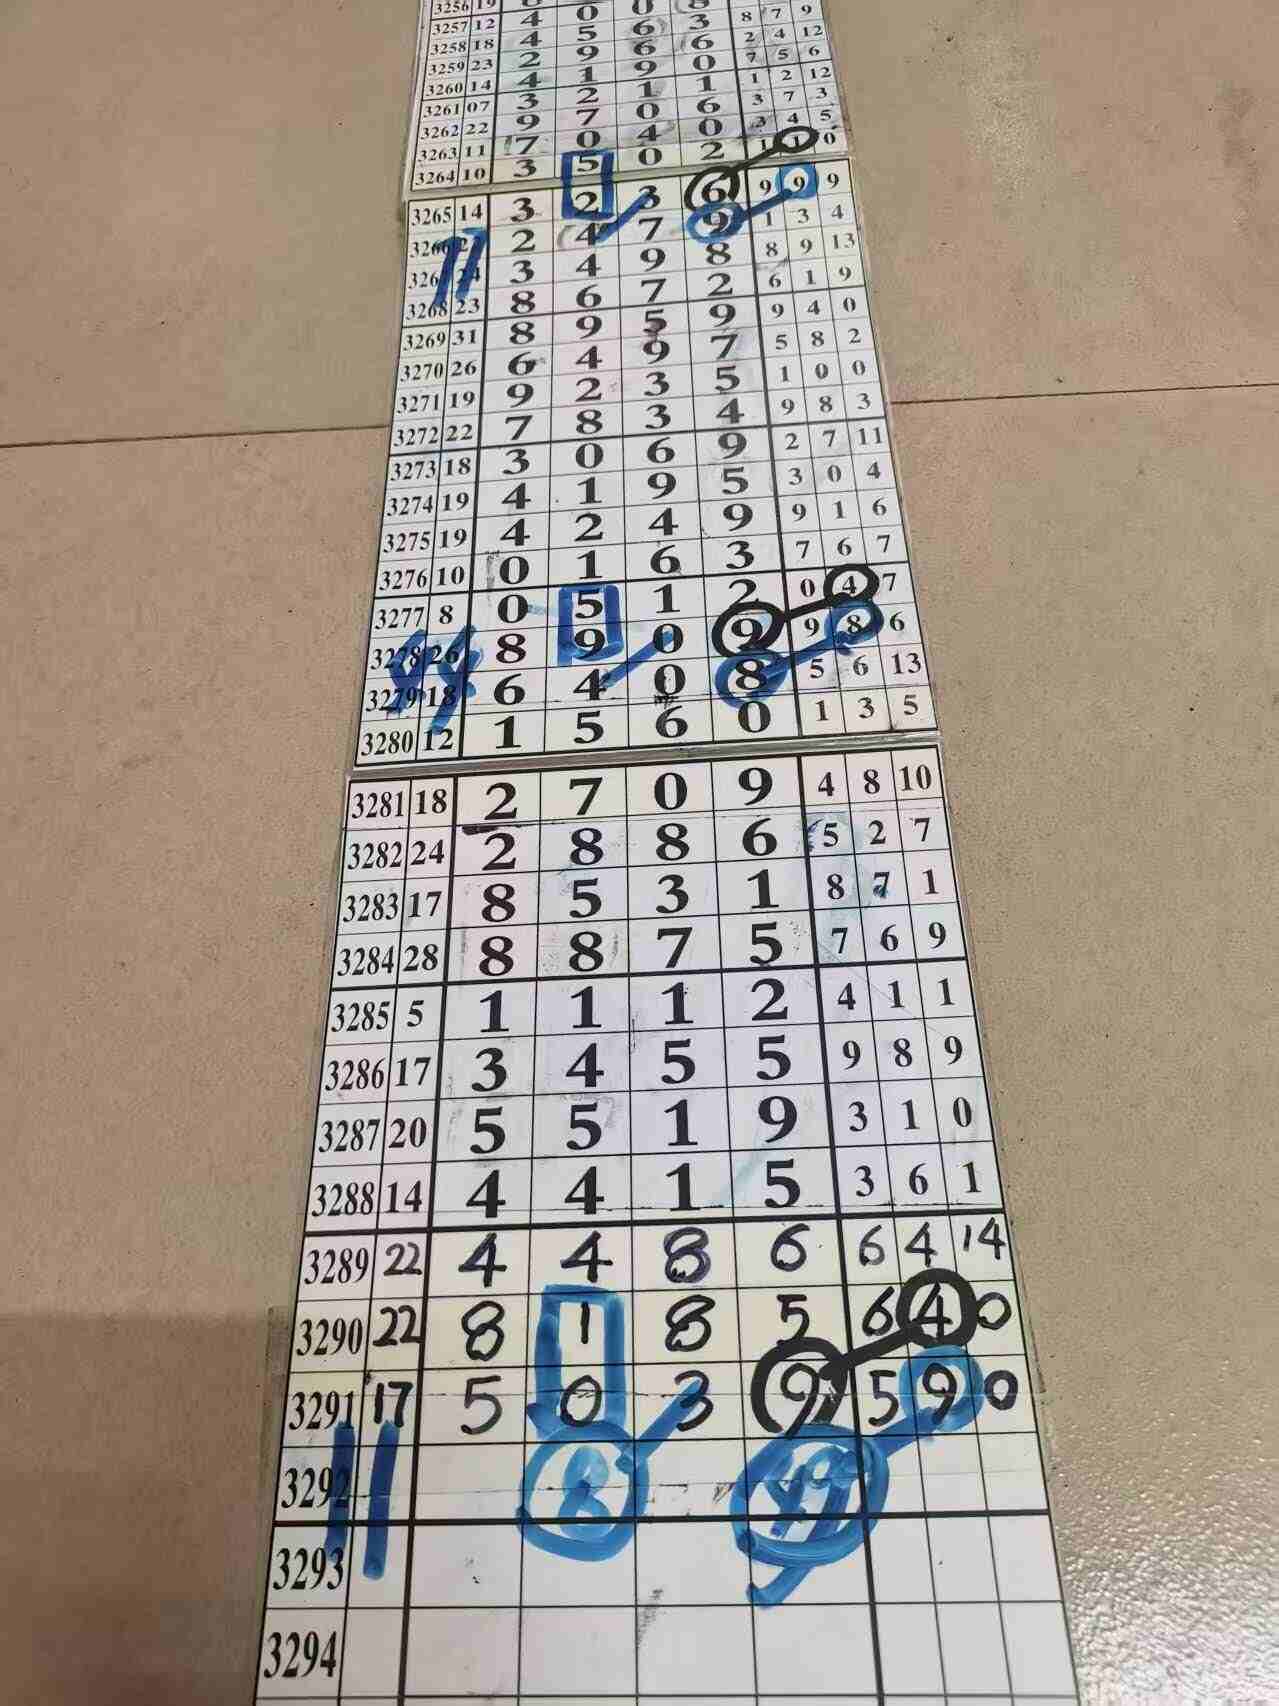 3256 19 0 8
3257 12 4 0 0 8 8 7 9
3258 18 4 5 6 3 2 4 12
3259 23 2 9 6 6 7 5 6
3260 14 4 1 9 0 1 2 12
3261 07 3 2 1 1 3 7 3
3262 22 9 7 0 6 3 4 5
3263 11 7 0 4 0 1 1 0
3264 10 3 5 0 2
3265 14 3 2 3 6 9 9 9
3266 22 2 4 7 9 1 3 4
3267 24 3 4 9 8 8 9 13
3268 23 8 6 7 2 6 1 9
3269 31 8 9 5 9 9 4 0
3270 26 6 4 9 7 5 8 2
3271 19 9 2 3 5 1 0 0
3272 22 7 8 3 4 9 8 3
3273 18 3 0 6 9 2 7 11
3274 19 4 1 9 5 3 0 4
3275 19 4 2 4 9 9 1 6
3276 10 0 1 6 3 7 6 7
3277 8 0 5 1 2 0 4 7
3278 26 8 9 0 9 9 8 6
3279 18 6 4 0 8 5 6 13
3280 12 1 5 6 0 1 3 5
3281 18 2 7 0 9 4 8 10
3282 24 2 8 8 6 5 2 7
3283 17 8 5 3 1 8 7 1
3284 28 8 8 7 5 7 6 9
3285 5 1 1 1 2 4 1 1
3286 17 3 4 5 5 9 8 9
3287 20 5 5 1 9 3 1 0
3288 14 4 4 1 5 3 6 1
3289 22 4 4 8 6 6 4 14
3290 22 8 1 8 5 6 4 0
3291 17 5 0 3 9 5 9 0
3292
3293
3294